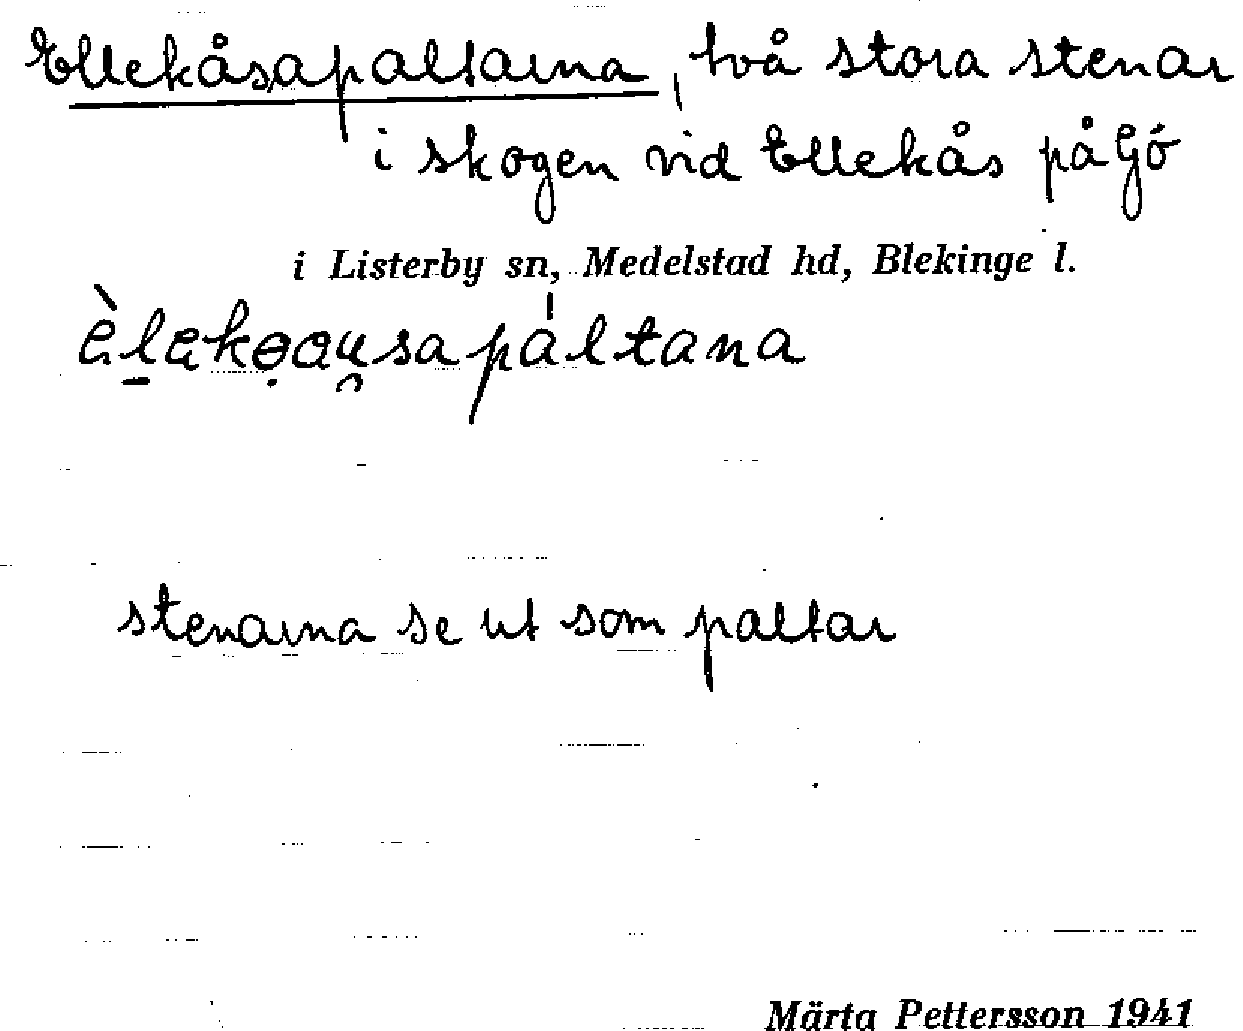 Ellekåsapaltarna, två stora stenar
i skogen vid Ellekås på Gö
i Listerby sn, Medelstad hd, Blekinge l.
èlekɵau̯sapáltana
stenarna se ut som paltar
Märta Pettersson 1941